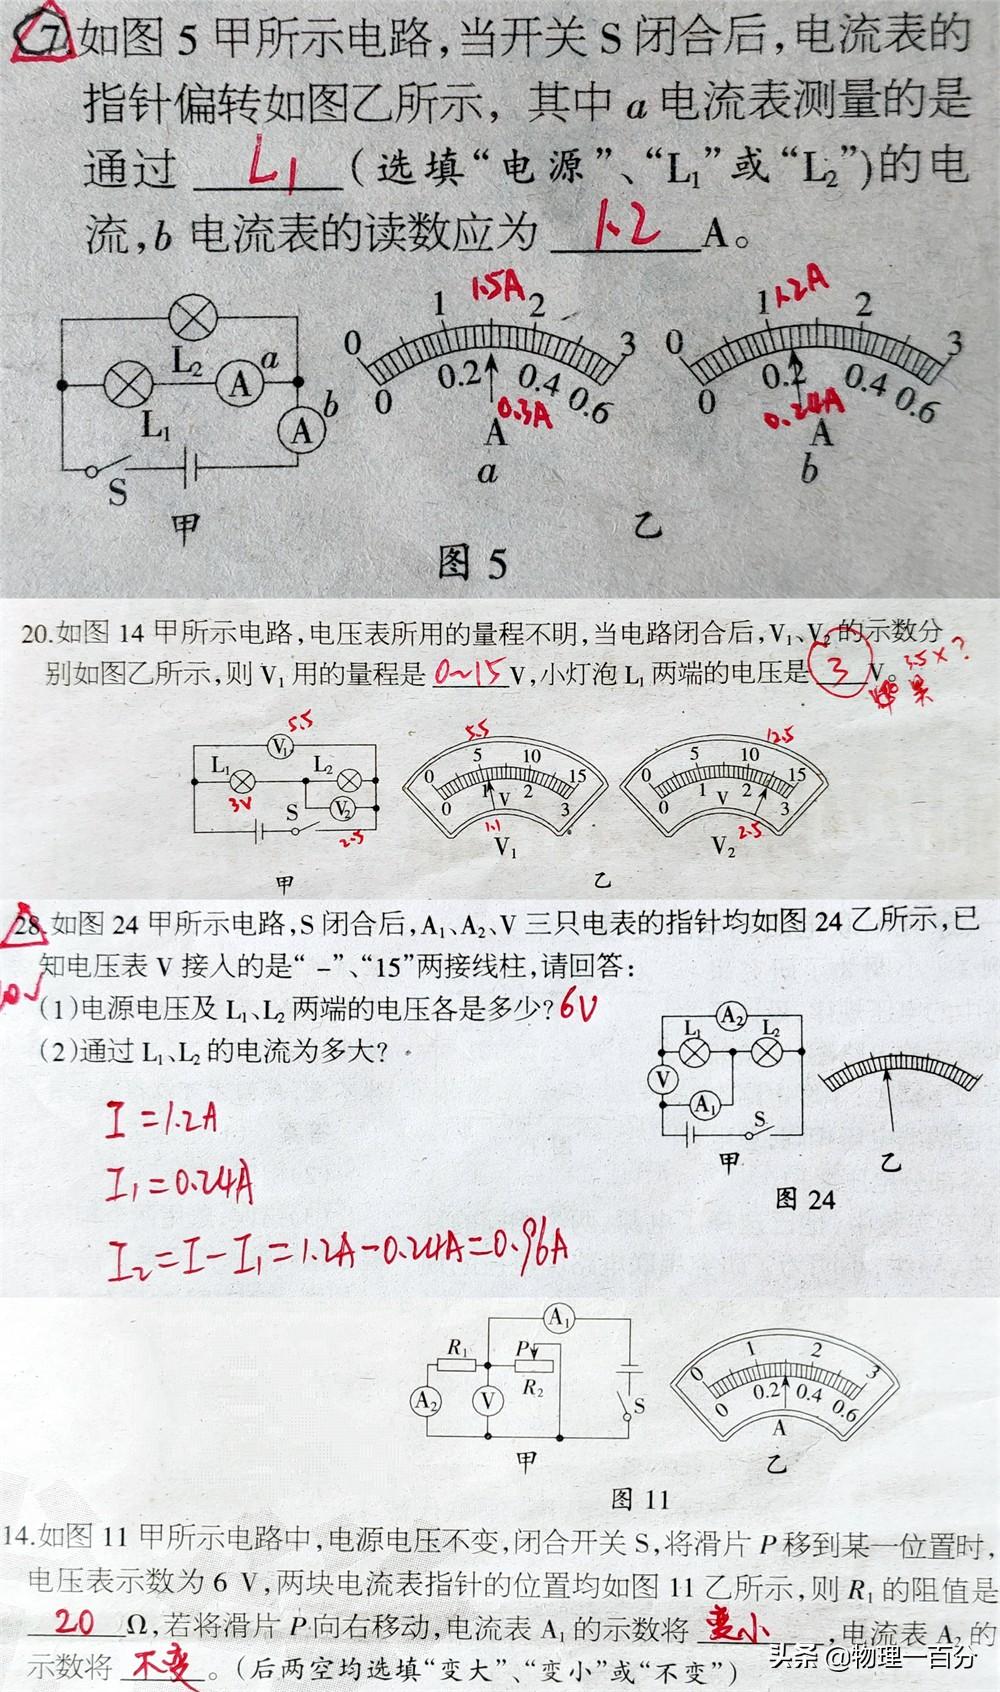 7.如图5甲所示电路,当开关S闭合后,电流表的
指针偏转如图乙所示,其中a电流表测量的是
通过 L₁ (选填“电源”、“L₁”或“L₂”)的电
流,b电流表的读数应为 1.2 A。
L₂
a
A
L₁
b
A
S
甲
1.5A
0 1 2 3
0 0.2 0.4 0.6
0.3A
A
a
1.2A
0 1 2 3
0 0.2 0.4 0.6
0.24A
A
b
乙
图5
20.如图14甲所示电路,电压表所用的量程不明,当电路闭合后,V₁、V₂的示数分
别如图乙所示,则V₁用的量程是 0~15 V,小灯泡L₁两端的电压是 3 V。
3.5×?
5.5
V₁
L₁ L₂
3V
S V₂
2.5
甲
5.5
0 5 10 15
0 1 2 3
V
1.1
V₁
12.5
0 5 10 15
0 1 2 3
V
2.5
V₂
乙
28.如图24甲所示电路,S闭合后,A₁、A₂、V三只电表的指针均如图24乙所示,已
知电压表V接入的是“-”、“15”两接线柱,请回答:
(1)电源电压及L₁、L₂两端的电压各是多少? 6V
(2)通过L₁、L₂的电流为多大?
I=1.2A
I₁=0.24A
I₂=I-I₁=1.2A-0.24A=0.96A
A₂
L₁ L₂
V
A₁
S
甲
乙
图24
A₁
R₁ P
R₂
A₂ V S
甲
0 1 2 3
0 0.2 0.4 0.6
A
乙
图11
14.如图11甲所示电路中,电源电压不变,闭合开关S,将滑片P移到某一位置时,
电压表示数为6 V,两块电流表指针的位置均如图11乙所示,则R₁的阻值是
20 Ω,若将滑片P向右移动,电流表A₁的示数将 变小 ,电流表A₂的
示数将 不变 。(后两空均选填“变大”、“变小”或“不变”)
头条 @物理一百分